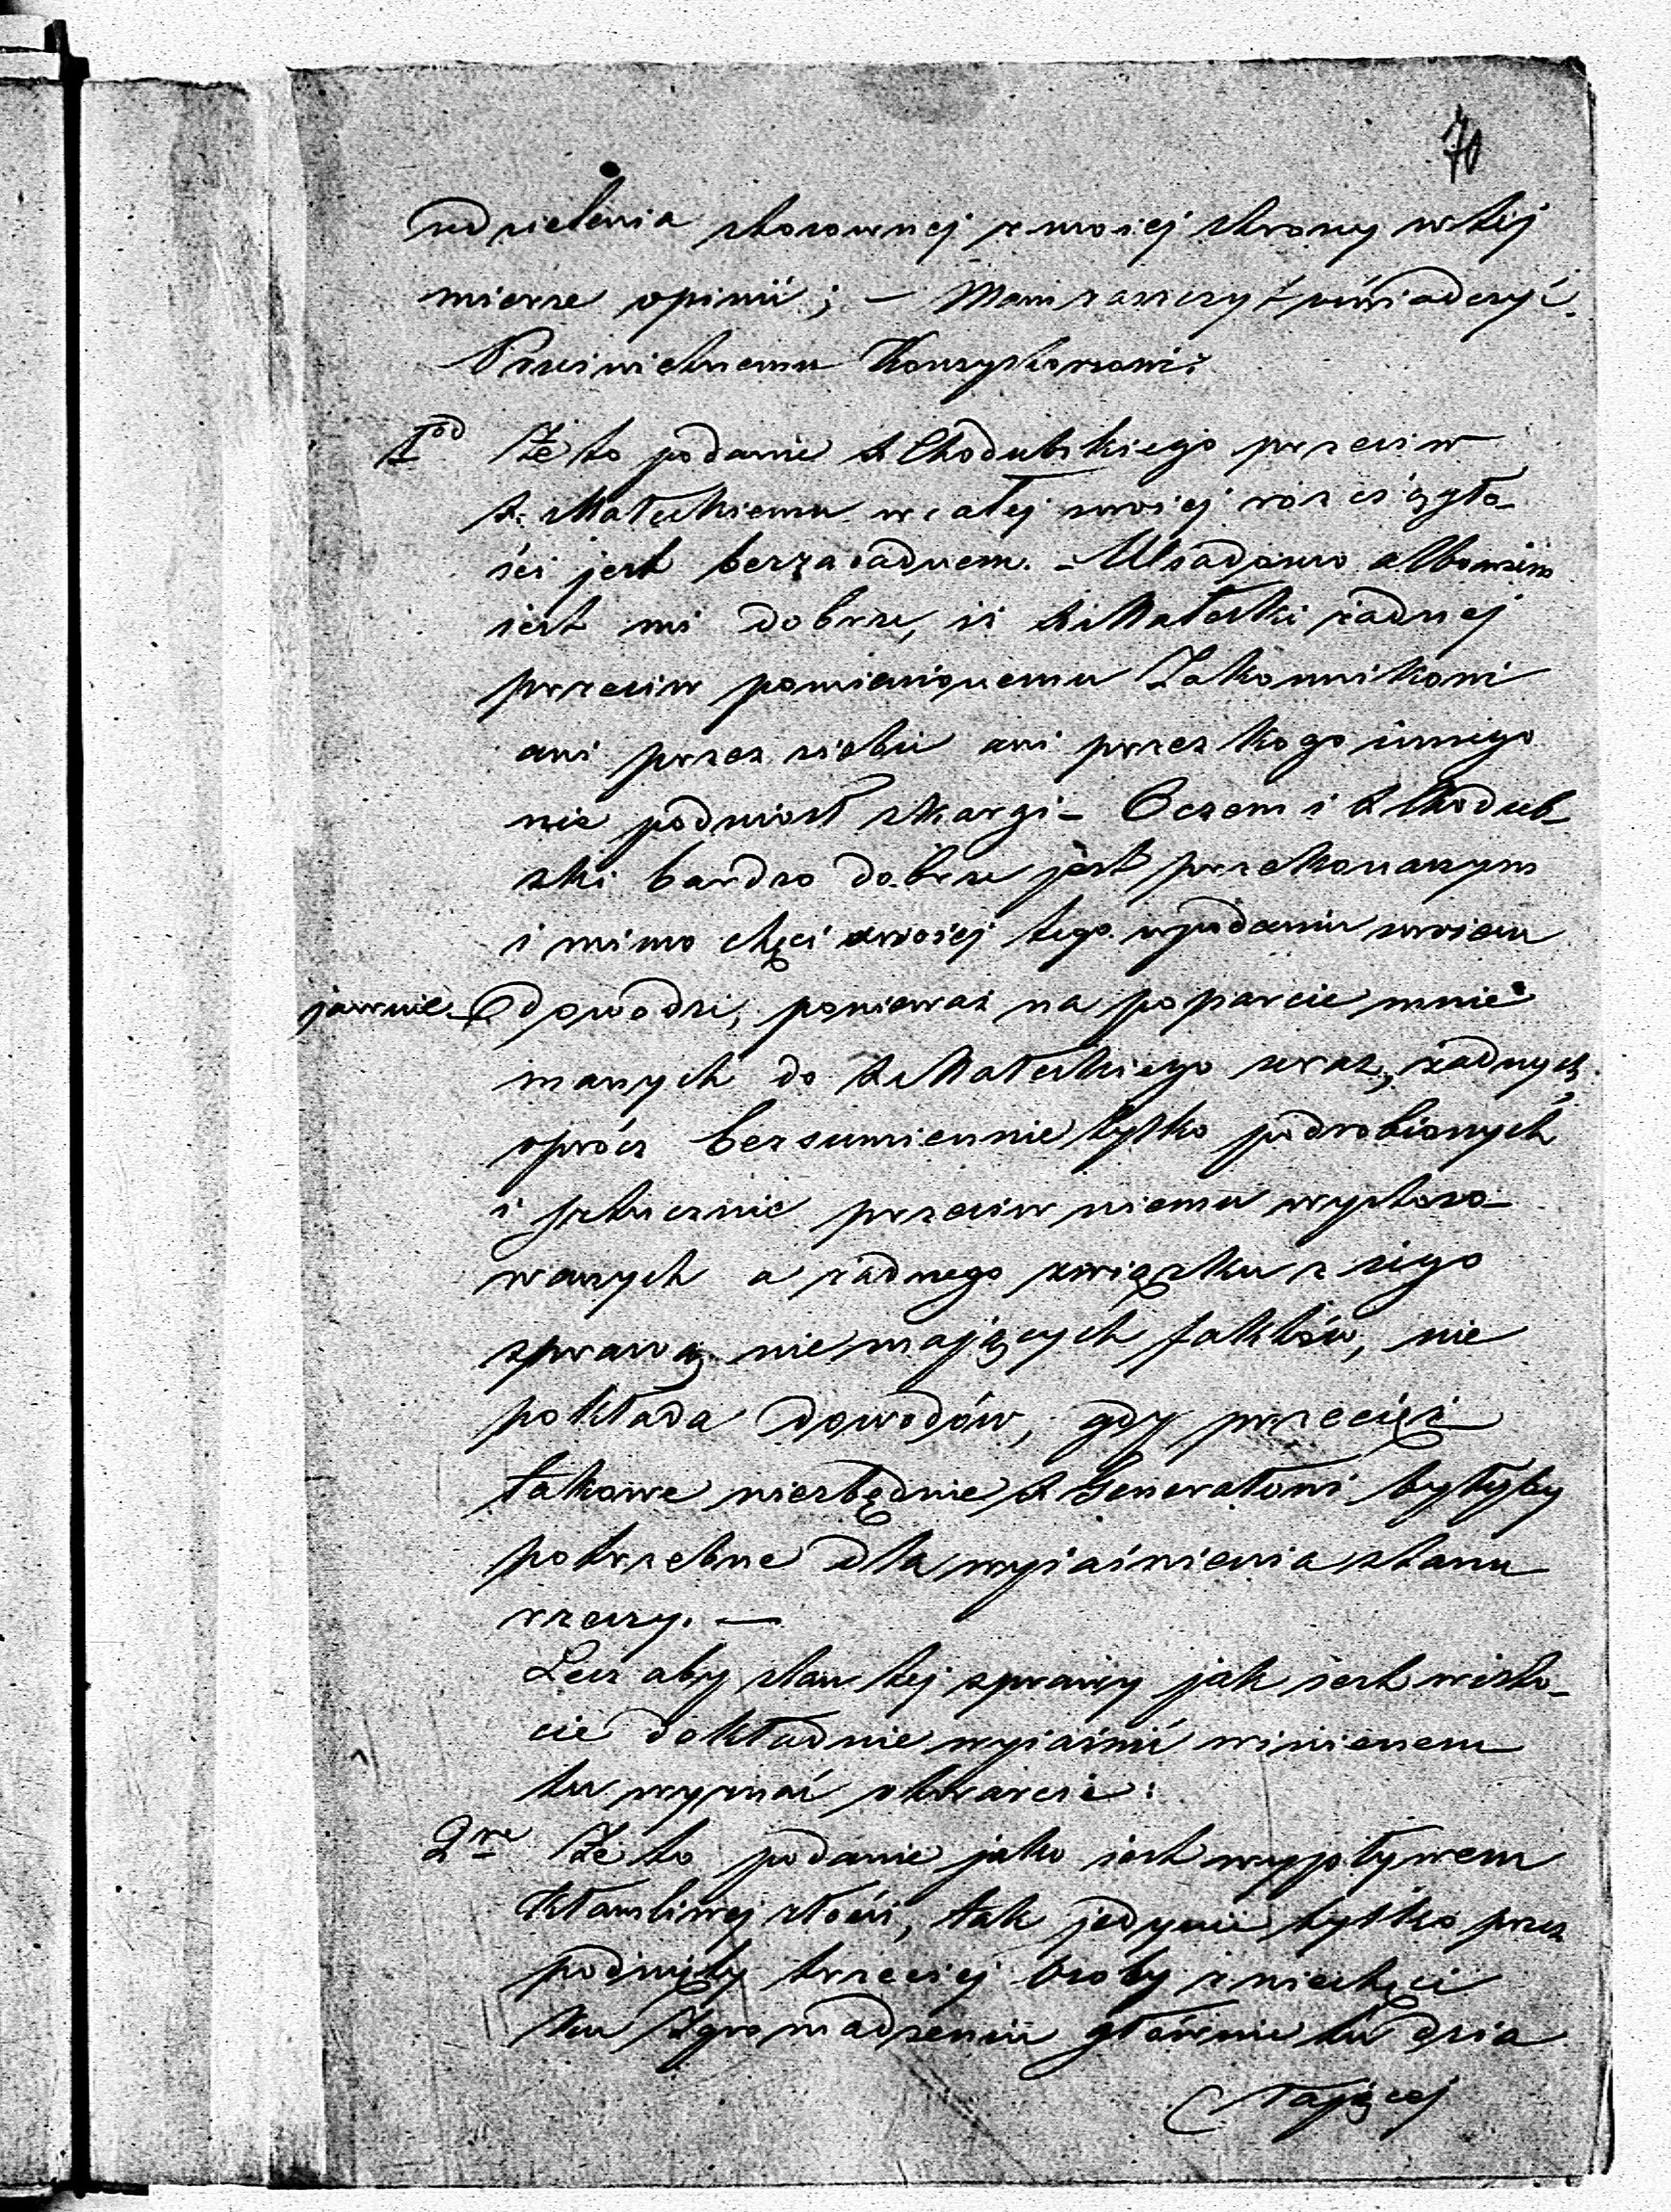 70
udzielenia stosownej z mojej strony w tej
mierze opinii; — Mam zaszczyt uwiadczyć
Prześwietnemu Konsystorzowi:
1od Że to podanie X Chodubskiego przeciw
X. Małeckiemu w całej swojej rozciągło-
ści jest bezzasadnem. - Wiadomo albowiem
jest mi dobrze, iż X Małecki żadnej
przeciw pomienionemu Zakonnikowi
ani przez siebie ani przez kogo innego
nie podniósł skargi - O czem i X Chodub-
ski bardzo dobrze jest przekonanym
i mimo chęci swojej tego w podaniu swojem
jawnie dowodzi, ponieważ na poparcie mnie
manych do X Małeckiego uraz, żadnych
oprócz bezsumiennie tylko podrobionych
i sztucznie przeciw niemu wystoso-
wanych a żadnego związku z jego
sprawą nie mających faktów, nie
pokłada dowodów, gdy przecięż
takowe niezbędnie X Generałowi byłyby
potrzebne dla wyjaśnienia stanu
rzeczy. —
Lecz aby stan tej sprawy jak jest w isto-
cie dokładnie wyjaśnić winienem
tu wyznać otwarcie:
2re Że to podanie jako jest wypływem
kłamliwej złości, tak jedynie tylko przez
podnięty trzeciej osoby z niechęci
ku Zgromadzeniu głównie tu dzia
łającej